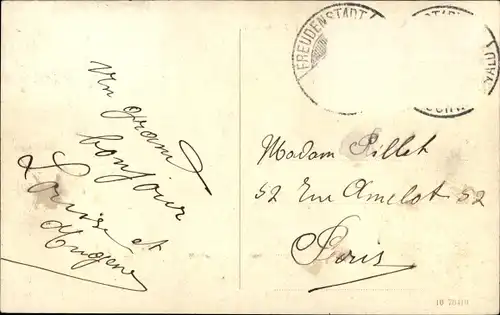 Un grand
bonjour
Louise et
Eugene
FREUDENSTADT
Madam Pillet
52 Rue Amelot 52
Paris